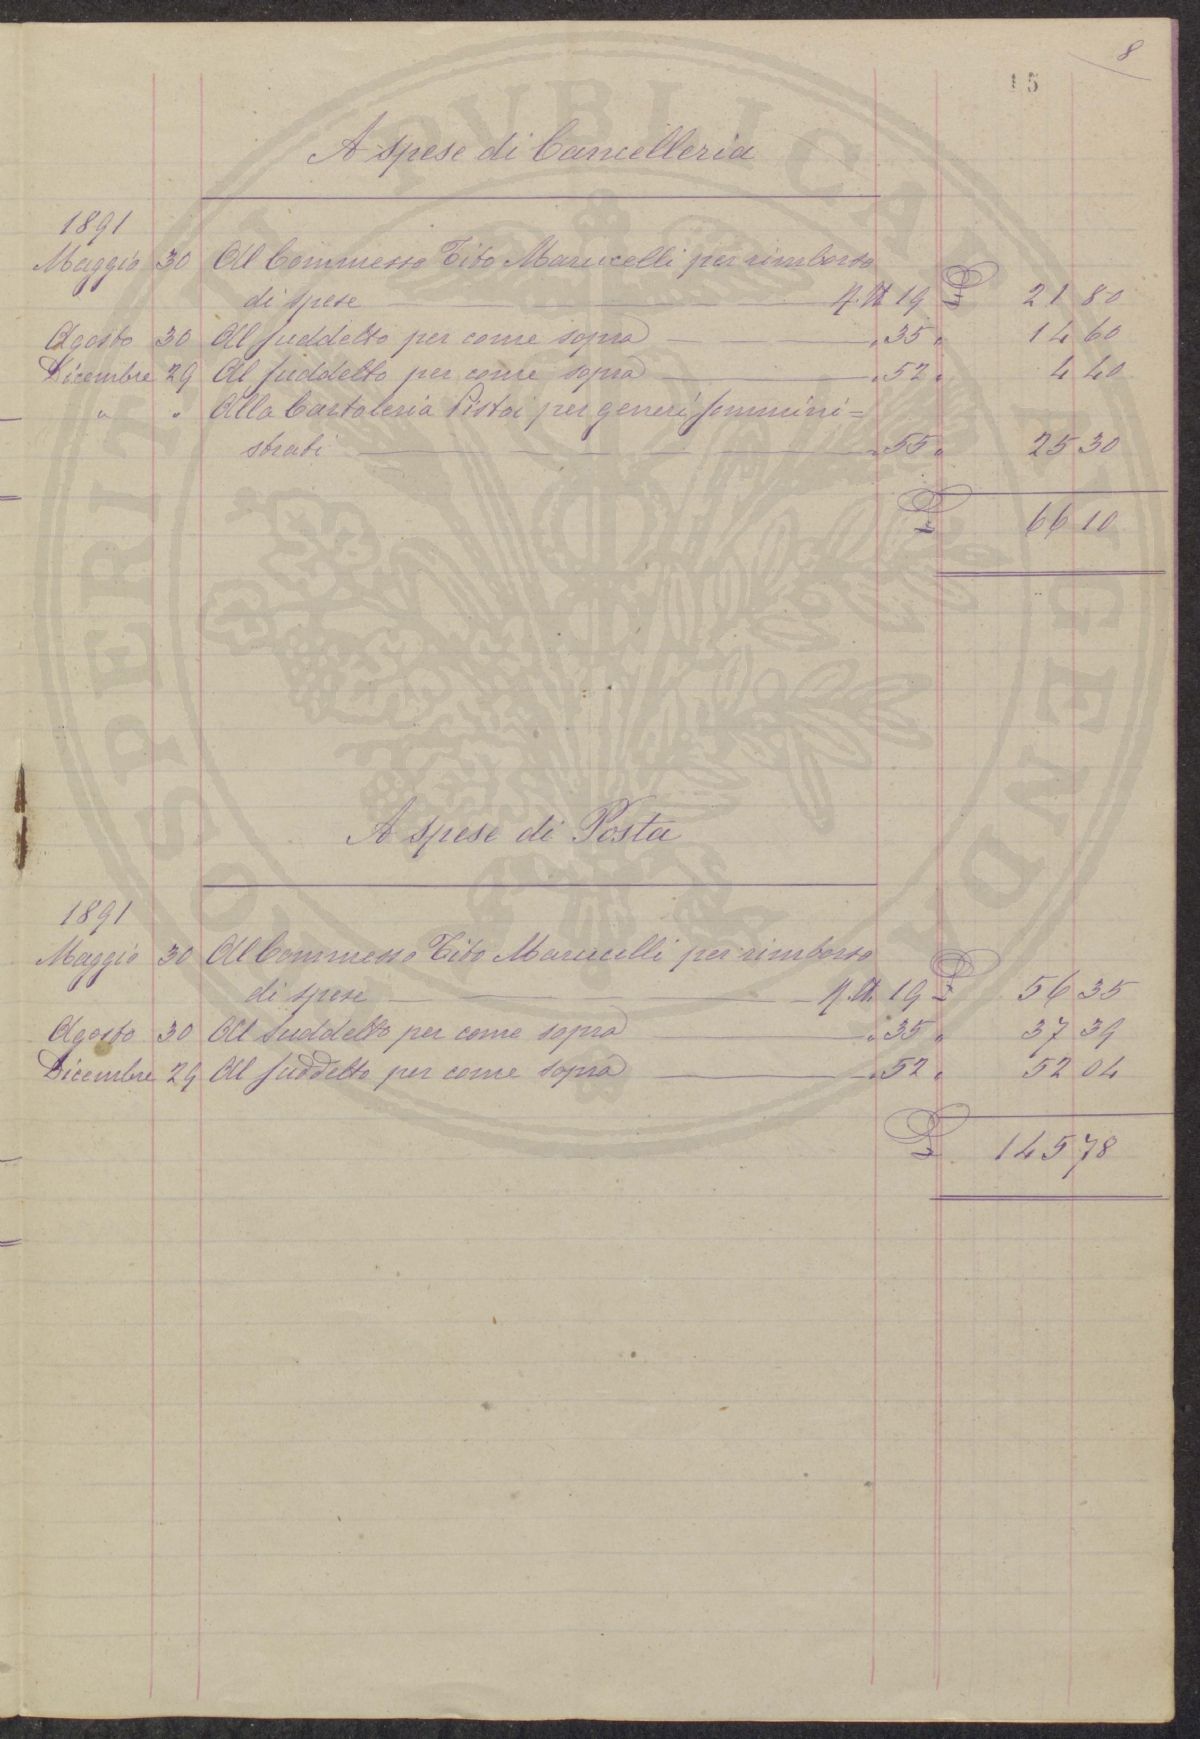 8
15
A spese di Cancelleria
1891
Maggio 30 Al Commesso Tito Marucelli per rimborso
di spese 19 £ 21 80
Agosto 30 Al suddetto per come sopra " 35 " 14 60
Dicembre 29 Al suddetto per come sopra " 52 " 4 40
" " Alla Cartoleria Pistoi per generi sommini=
strati " 55 " 25 30
£ 66 10
A spese di Posta
1891
Maggio 30 Al Commesso Tito Marucelli per rimborso
di spese 19 £ 56 35
Agosto 30 Al suddetto per come sopra " 35 " 37 39
Dicembre 29 Al suddetto per come sopra " 52 " 52 04
£ 145 78